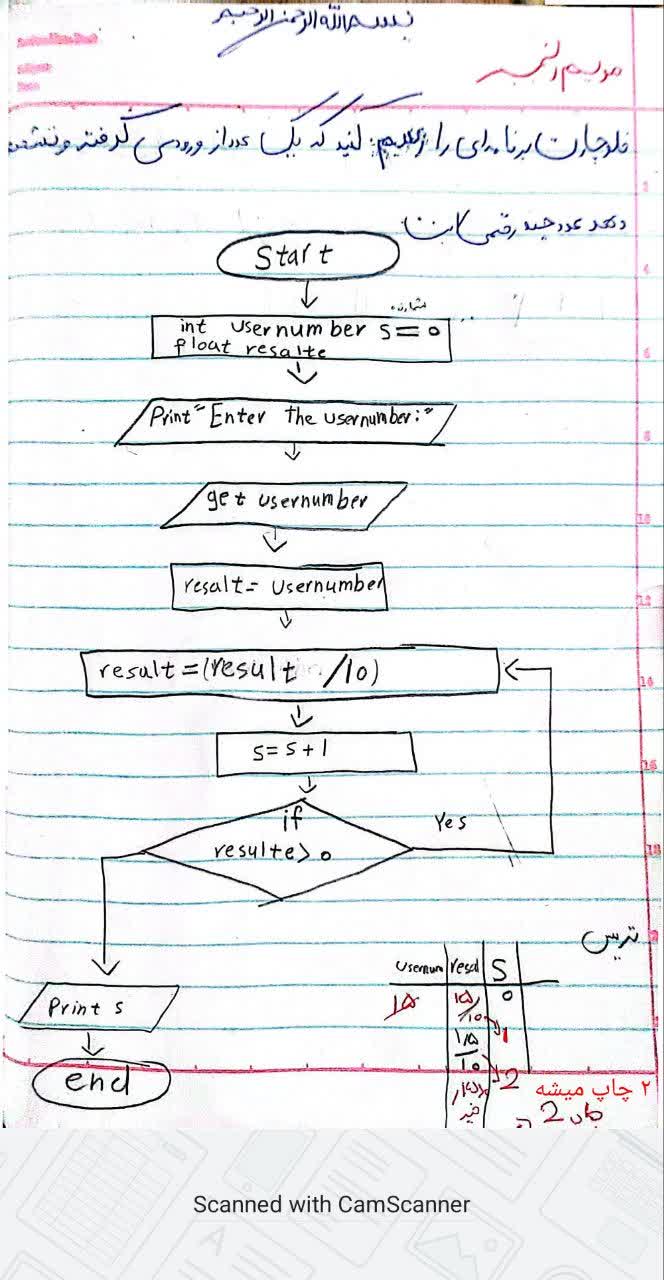 بسم الله الرحمن الرحیم
فلوچارت برنامه‌ای را رسیم کنید که یک عدد از ورودی گرفته و نشان
دهد عدد چند رقمی است
Start
int usernumber s=0
float resalte
Print"Enter the usernumber:"
get usernumber
resalt= usernumber
result=(result /10)
s=s+1
if
resulte>0
Yes
تریس
Usernum resal S
۱۵ ۱۵/10 0
1
۱/۵/10
2
خیر
Print s
end
۲ چاپ میشه
Scanned with CamScanner